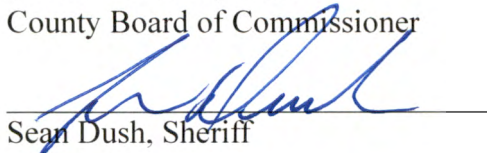 County Board of Commissioner
Sean Dush, Sheriff